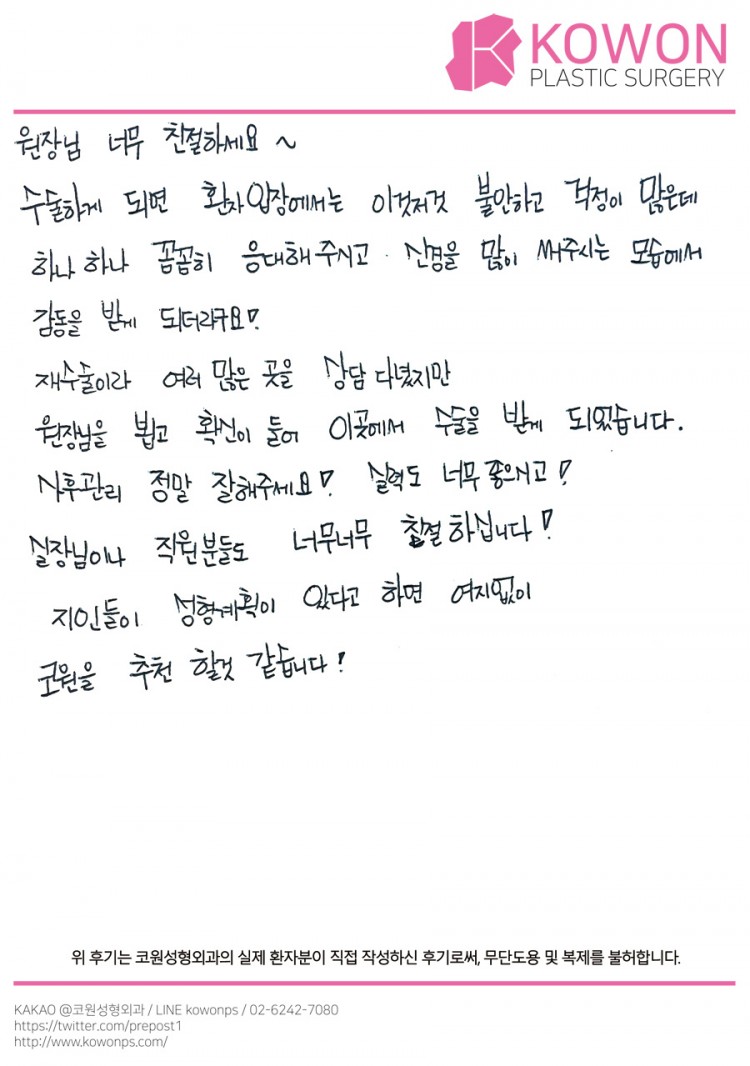 KOWON
PLASTIC SURGERY
원장님 너무 친절하세요~
수술하게 되면 환자입장에서는 이것저것 불안하고 걱정이 많은데
하나하나 꼼꼼히 응대해주시고 신경을 많이 써주시는 모습에서
감동을 받게 되더라구요!
재수술이라 여러 많은 곳을 상담 다녔지만
원장님을 뵙고 확신이 들어 이곳에서 수술을 받게 되었습니다.
사후관리 정말 잘해주세요! 실력도 너무 좋으시고!
실장님이나 직원분들도 너무너무 친절하십니다!
지인들이 성형계획이 있다고 하면 여지없이
코원을 추천 할것 같습니다!
위 후기는 코원성형외과의 실제 환자분이 직접 작성하신 후기로써, 무단도용 및 복제를 불허합니다.
KAKAO @코원성형외과 / LINE kowonps / 02-6242-7080
https://twitter.com/prepost1
http://www.kowonps.com/